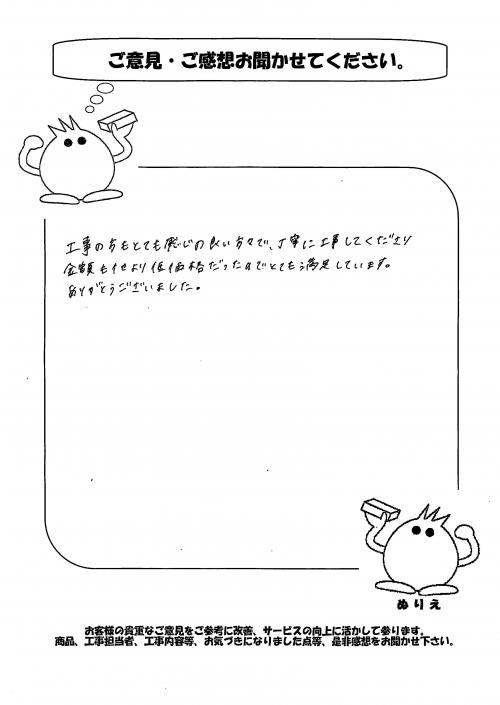 ご意見・ご感想お聞かせてください。
工事の方もとても感じの良い方々で、丁寧に工事してくださり
金額も他より低価格だったのでとても満足しています。
ありがとうございました。
ぬりえ
お客様の貴重なご意見をご参考に改善、サービスの向上に活かして参ります。
商品、工事担当者、工事内容等、お気づきになりました点等、是非感想をお聞かせ下さい。